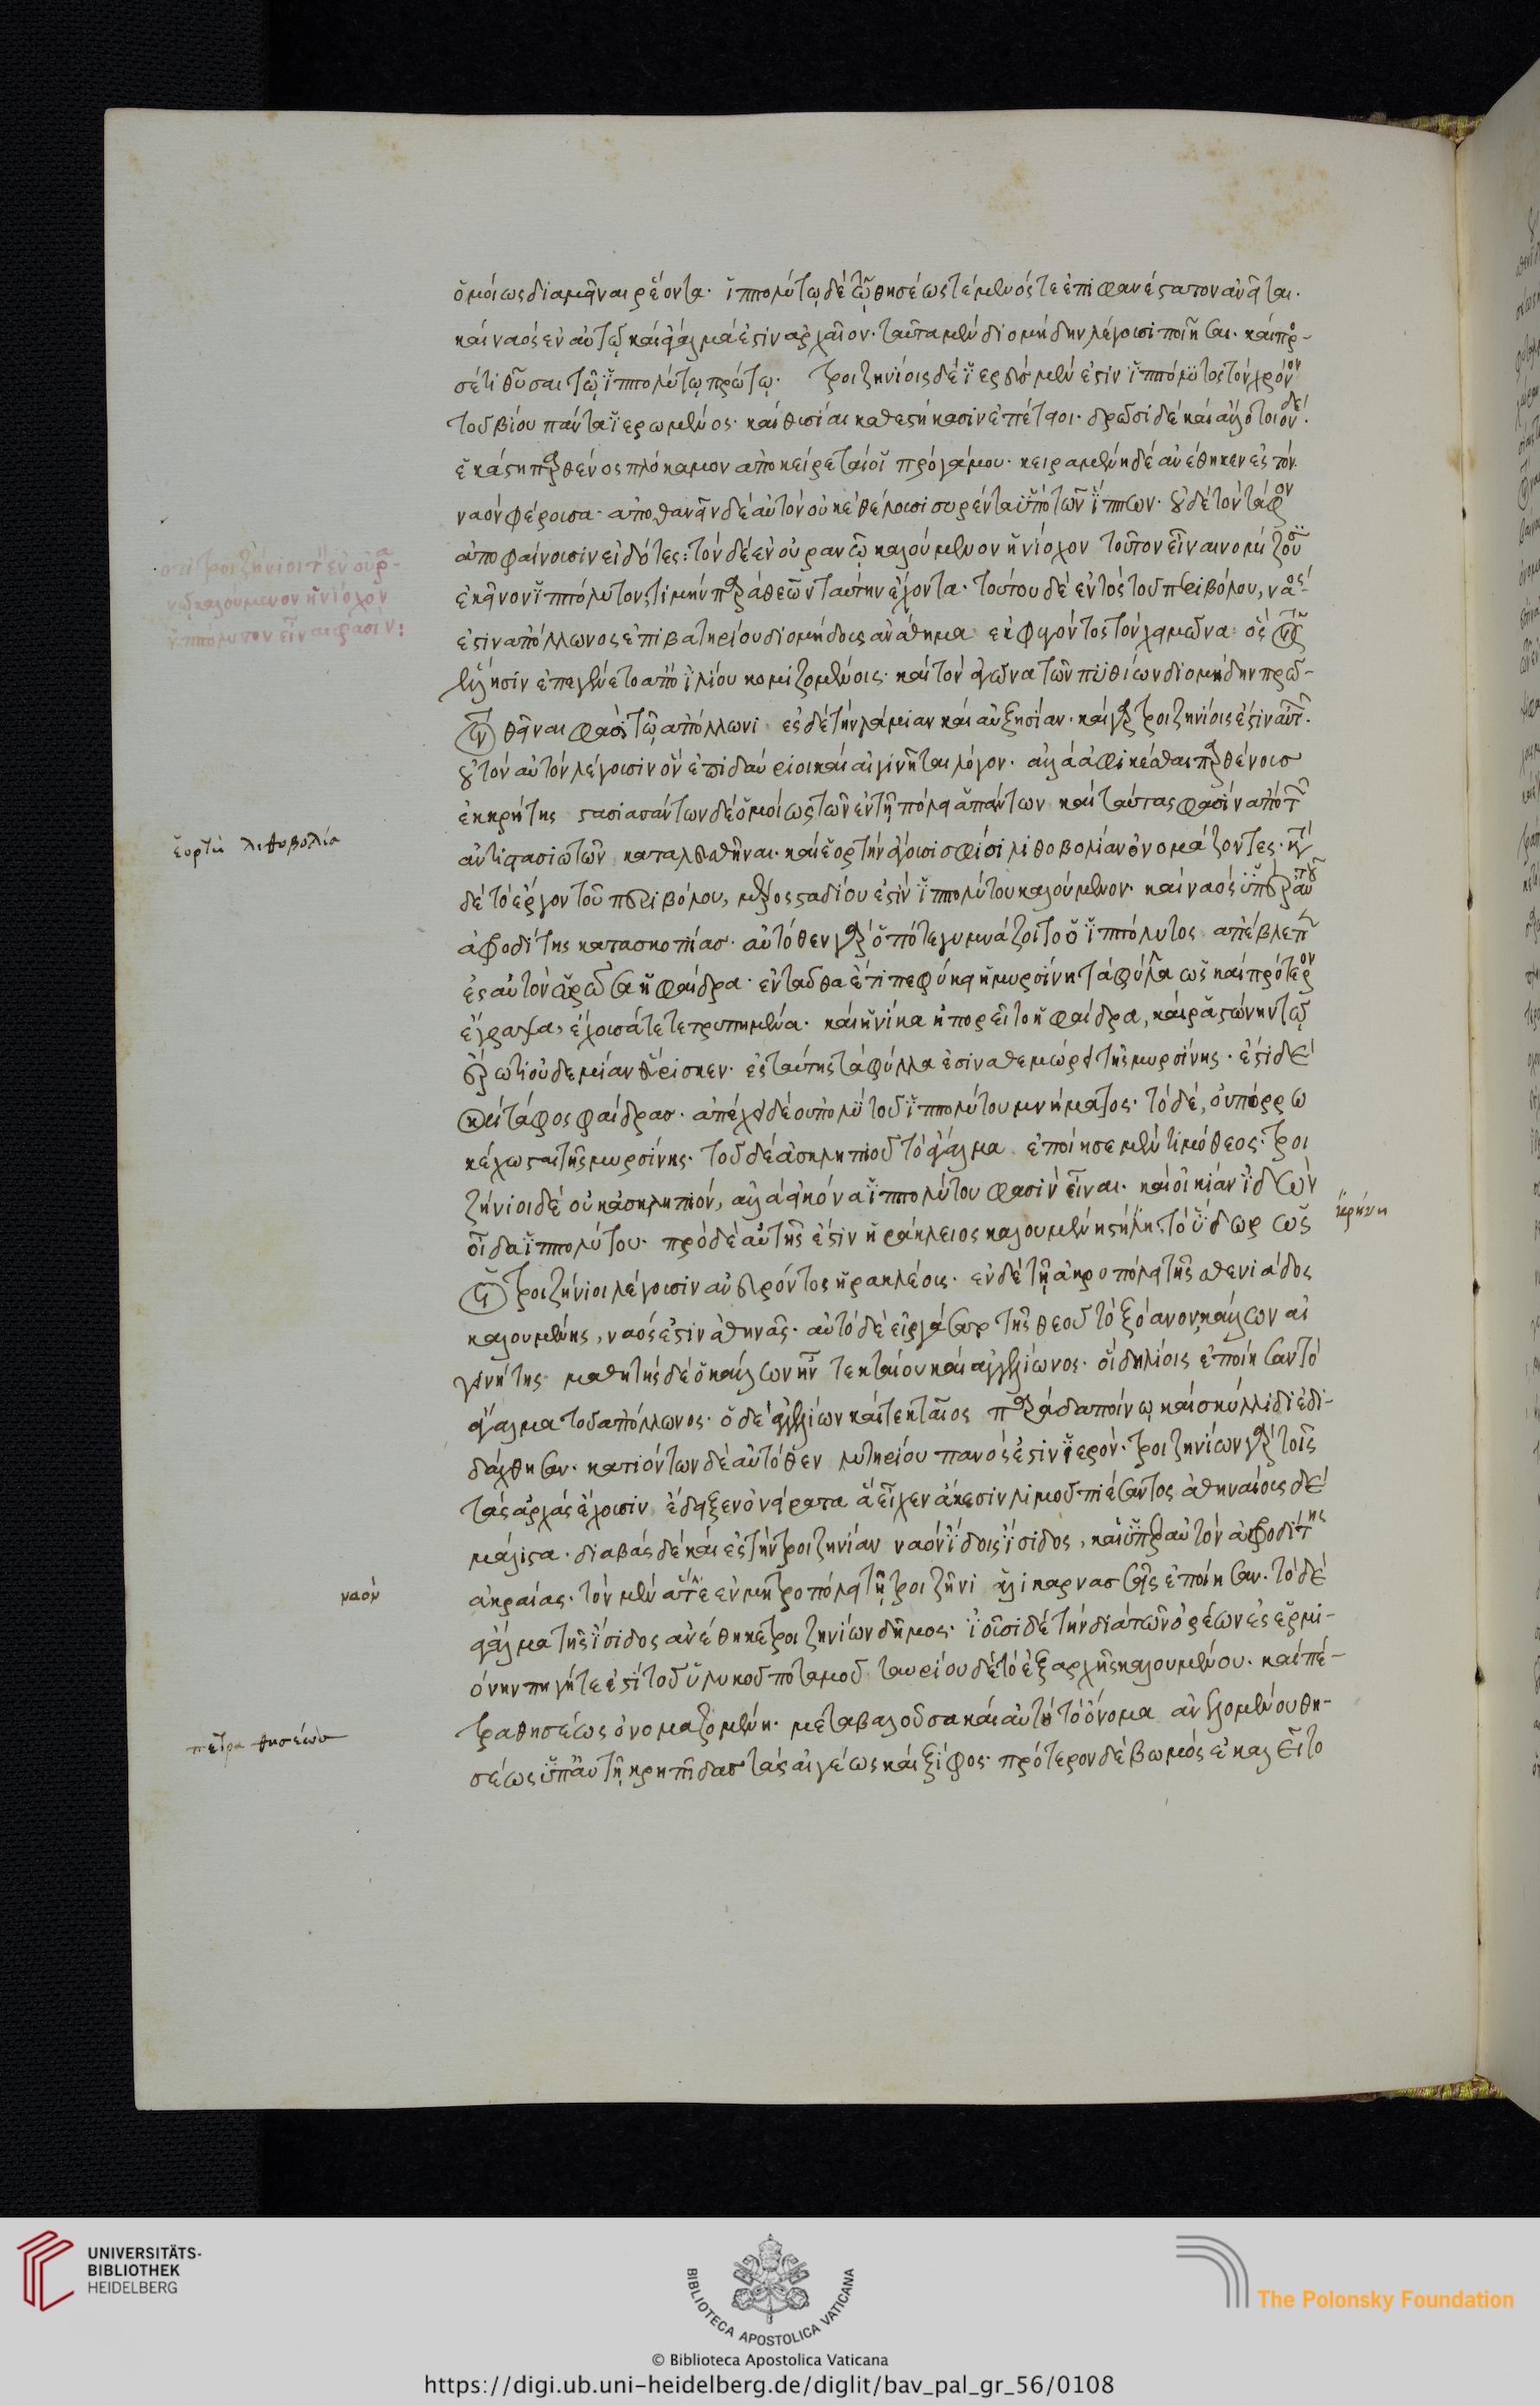 ὁμοίως διαμεῖναι ῥέοντα. ἱππολύτῳ δὲ τῷ θησέως τέμενός τε ἐπιφανέστατον ἀνεῖται.
καὶ ναὸς ἐν αὐτῷ καὶ ἄγαλμά ἐστιν ἀρχαῖον. ταῦτα μὲν διομήδην λέγουσι ποιῆσαι. καὶ προ-
σέτι θῦσαι τῷ ἱππολύτῳ πρώτῳ. τροιζηνίοις δὲ ἱερεὺς μέν ἐστιν ἱππολύτος τὸν χρόνον
τοῦ βίου πάντα ἱερωμένος. καὶ θυσίαι καθεστήκασιν ἐπέτειοι. δρῶσι δὲ καὶ ἄλλο τοιόνδε.
ἑκάστη παρθένος πλόκαμον ἀποκείρεταί οἱ πρὸ γάμου. κειραμένη δὲ ἀνέθηκεν ἐς τὸν
ναὸν φέρουσα. ἀποθανεῖν δὲ αὐτὸν οὐκ ἐθέλουσι συρέντα ὑπὸ τῶν ἵππων. οὐδὲ τὸν τάφον
ἀποφαίνουσιν εἰδότες: τὸν δὲ ἐν οὐρανῷ καλούμενον ἡνίοχον τοῦτον εἶναι νομίζουσι
ἐκεῖνον ἱππόλυτον τιμὴν παρὰ θεῶν ταύτην ἔχοντα. τούτου δὲ ἐντὸς τοῦ περιβόλου, ναός
ἐστιν ἀπόλλωνος ἐπιβατηρίου διομήδους ἀνάθημα ἐκφυγόντος τὸν χειμῶνα ὃς τοῖς
ἕλλησιν ἐπεγένετο ἀπὸ ἰλίου κομιζομένοις. καὶ τὸν ἀγῶνα τῶν πυθίων διομήδην πρῶ-
τον θεῖναι φασὶ τῷ ἀπόλλωνι ἐς δὲ τὴν λάμιαν καὶ αὐξησίαν. καὶ γὰρ τροιζηνίοις ἐστὶν αὐτ.
οὐ τὸν αὐτὸν λέγουσιν ὃν ἐπιδαύριοι καὶ αἰγινῆται λόγον. ἀλλὰ ἀφικέσθαι παρθένους
ἐκ κρήτης στασιασάντων δὲ ὁμοίως τῶν ἐν τῇ πόλει ἁπάντων καὶ ταύτας φασὶν ἀπὸ τ
ἀντιστασιωτῶν καταλευσθῆναι. καὶ ἑορτὴν ἄγουσι σφίσι λιθοβολίαν ὀνομάζοντες. κτ
δὲ τὸ ἕργον τοῦ περιβόλου, μέρος σταδίου ἐστὶν ἱππολύτου καλούμενον. καὶ ναὸς ὑπὲρ αὐτοῦ
ἀφροδίτης κατασκοπίας. αὐτόθεν γὰρ ὁπότε γυμνάζοιτο ὁ ἱππόλυτος ἀπέβλεπεν
ἐς αὐτὸν ἐρῶσα ἡ φαίδρα. ἐνταῦθα ἔτι πεφύκει ἡ μυρσίνη τὰ φύλλα ὡς καὶ πρότερον
ἔγραψα, ἔχουσά τε τετρυπημένα. καὶ ἡνίκα ἠπορεῖτο ἡ φαίδρα, καὶ ῥᾳστώνην τῷ
ἔρωτι οὐδεμίαν εὕρισκεν. ἐς ταύτης τὰ φύλλα ἐσιναθεμώρει τῆς μυρσίνης. ἔστι δὲ
καὶ τάφος φαίδρας. ἀπέχει δὲ οὐ πολὺ τοῦ ἱππολύτου μνήματος. τὸ δέ, οὐ πόρρω
κέχωσται τῆς μυρσίνης. τοῦ δὲ ἀσκληπιοῦ τὸ ἄγαλμα ἐποίησε μὲν τιμόθεος. τροι
ζήνιοι δὲ οὐκ ἀσκληπιόν, ἀλλὰ εἰκόνα ἱππολύτου φασὶν εἶναι. καὶ οἰκίαν ἰδὼν
οἶδα ἱππολύτου. πρὸ δὲ αὐτῆς ἐστὶν ἡράκλειος καλουμένη στήλης τὸ ὕδωρ ὡς
οἱ τροιζήνιοι λέγουσιν ἀνευρόντος ἡρακλέους. ἐν δὲ τῇ ἀκροπόλει τῆς σθενιάδος
καλουμένης, ναός ἐστιν ἀθηνᾶς. αὐτὸ δὲ εἰργάσατο τῆς θεοῦ τὸ ξόανον, κάλλων αἰ
γινήτης μαθητὴς δὲ ὁ κάλλων ἦν τεκταίου καὶ ἀγγελίωνος. οἳ δηλίοις ἐποίησαν τὸ
ἄγαλμα τοῦ ἀπόλλωνος. ὁ δὲ ἀγγελίων καὶ τεκταῖος παρὰ δαποίνῳ καὶ σκύλλιδι ἐδι-
δάχθησαν. κατιόντων δὲ αὐτόθεν λυτηρίου πανός ἐστιν ἱερόν. τροιζηνίων γὰρ τοῖς
τὰς ἀρχὰς ἔχουσιν ἔδειξεν ὀνείρατα ἃ εἶχεν ἄκεσιν λιμοῦ πιέσαντος ἀθηναίους δὲ
μάλιστα. διαβὰς δὲ καὶ ἐς τὴν τροιζηνίαν ναὸν ἴδοις ἴσιδος, καὶ ὑπὲρ αὐτὸν ἀφροδίτης
ἀκραίας. τὸν μὲν ἅτε ἐν μητροπόλει τῇ τροιζῆνι ἁλικαρνασσεῖς ἐποίησαν. τὸ δὲ
ἄγαλμα τῆς ἴσιδος ἀνέθηκε τροιζηνίων δῆμος. ἰοῦσι δὲ τὴν διὰ τῶν ὀρέων ἐς ἑρμι-
όνην πηγή τε ἐστὶ τοῦ ὑλυκοῦ ποταμοῦ ταυρίου δὲ τὸ ἐξ ἀρχῆς καλουμένου. καὶ πέ-
τρα θησέως ὀνομαζομένη. μεταβαλοῦσα καὶ αὐτὴ τὸ ὄνομα ἀνελομένου θη-
σέως ὑπ᾽ αὐτῇ κρηπῖδας τὰς αἰγέως καὶ ξίφος. πρότερον δὲ βωμὸς ἐκαλεῖτο
ὅτι τροιζήνιοι τὸν ἐν οὐρα-
νῷ καλούμενον ἡνίοχον
ἱππόλυτον εἶναι φασίν:
ἑορτὴ λιθοβολία
κρήνη
ναόν
πέτρα θησέως
UNIVERSITÄTS-
BIBLIOTHEK
HEIDELBERG
BIBLIOTECA APOSTOLICA VATICANA
© Biblioteca Apostolica Vaticana
The Polonsky Foundation
https://digi.ub.uni-heidelberg.de/diglit/bav_pal_gr_56/0108